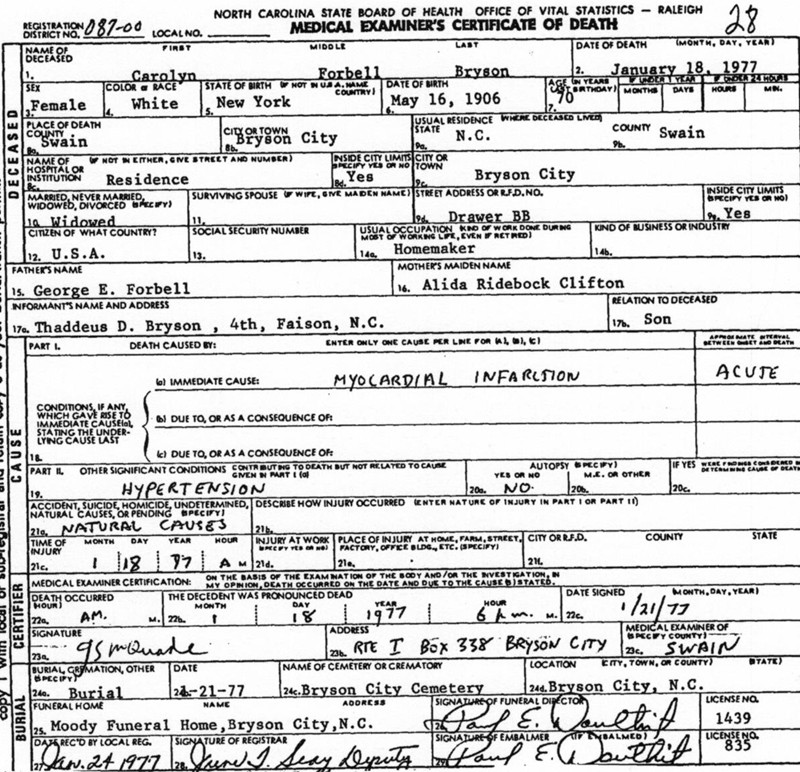 NORTH CAROLINA STATE BOARD OF HEALTH OFFICE OF VITAL STATISTICS — RALEIGH
MEDICAL EXAMINER'S CERTIFICATE OF DEATH
28
REGISTRATION DISTRICT NO. 087-00 LOCAL NO.
NAME OF DECEASED FIRST MIDDLE LAST DATE OF DEATH (MONTH, DAY, YEAR)
1. Carolyn Forbell Bryson 2. January 18, 1977
SEX COLOR OR RACE STATE OF BIRTH (IF NOT IN U.S.A. NAME COUNTRY) DATE OF BIRTH AGE (IN YEARS LAST BIRTHDAY) IF UNDER 1 YEAR IF UNDER 24 HOURS
MONTHS DAYS HOURS MIN.
3. Female 4. White 5. New York 6. May 16, 1906 7. 70
DECEASED
PLACE OF DEATH COUNTY CITY OR TOWN USUAL RESIDENCE (WHERE DECEASED LIVED) STATE COUNTY
8a. Swain 8b. Bryson City 9a. N.C. 9b. Swain
NAME OF HOSPITAL OR INSTITUTION (IF NOT IN EITHER, GIVE STREET AND NUMBER) INSIDE CITY LIMITS (SPECIFY YES OR NO) CITY OR TOWN
8c. Residence 8d. Yes 9c. Bryson City
MARRIED, NEVER MARRIED, WIDOWED, DIVORCED (SPECIFY) SURVIVING SPOUSE (IF WIFE, GIVE MAIDEN NAME) STREET ADDRESS OR R.F.D. NO. INSIDE CITY LIMITS (SPECIFY YES OR NO)
10. Widowed 11. 9d. Drawer BB 9e. Yes
CITIZEN OF WHAT COUNTRY? SOCIAL SECURITY NUMBER USUAL OCCUPATION (KIND OF WORK DONE DURING MOST OF WORKING LIFE, EVEN IF RETIRED) KIND OF BUSINESS OR INDUSTRY
12. U.S.A. 13. 14a. Homemaker 14b.
FATHER'S NAME MOTHER'S MAIDEN NAME
15. George E. Forbell 16. Alida Ridebock Clifton
INFORMANT'S NAME AND ADDRESS RELATION TO DECEASED
17a. Thaddeus D. Bryson , 4th, Faison, N.C. 17b. Son
PART I. DEATH CAUSED BY: ENTER ONLY ONE CAUSE PER LINE FOR (A), (B), (C) APPROXIMATE INTERVAL BETWEEN ONSET AND DEATH
(a) IMMEDIATE CAUSE: MYOCARDIAL INFARCTION ACUTE
CONDITIONS, IF ANY, WHICH GAVE RISE TO IMMEDIATE CAUSE(a), STATING THE UNDERLYING CAUSE LAST
(b) DUE TO, OR AS A CONSEQUENCE OF:
18. (c) DUE TO, OR AS A CONSEQUENCE OF:
CAUSE
PART II. OTHER SIGNIFICANT CONDITIONS CONTRIBUTING TO DEATH BUT NOT RELATED TO CAUSE GIVEN IN PART I (a) AUTOPSY (SPECIFY) YES OR NO M.E. OR OTHER IF YES WERE FINDINGS CONSIDERED IN DETERMINING CAUSE OF DEATH
19. HYPERTENSION 20a. NO. 20b. 20c.
ACCIDENT, SUICIDE, HOMICIDE, UNDETERMINED, NATURAL CAUSES, OR PENDING (SPECIFY) DESCRIBE HOW INJURY OCCURRED (ENTER NATURE OF INJURY IN PART I OR PART II)
21a. NATURAL CAUSES 21b.
TIME OF INJURY MONTH DAY YEAR HOUR INJURY AT WORK (SPECIFY YES OR NO) PLACE OF INJURY AT HOME, FARM, STREET, FACTORY, OFFICE BLDG., ETC. (SPECIFY) CITY OR R.F.D. COUNTY STATE
21c. 1 18 77 A M 21d. 21e. 21f.
MEDICAL EXAMINER CERTIFICATION: ON THE BASIS OF THE EXAMINATION OF THE BODY AND/OR THE INVESTIGATION, IN MY OPINION, DEATH OCCURRED ON THE DATE AND DUE TO THE CAUSE(S) STATED.
DEATH OCCURRED (HOUR) THE DECEDENT WAS PRONOUNCED DEAD MONTH DAY YEAR HOUR DATE SIGNED (MONTH, DAY, YEAR)
22a. AM. M. 22b. 1 18 1977 6 p.m. M. 22c. 1/21/77
CERTIFIER
SIGNATURE ADDRESS MEDICAL EXAMINER OF (SPECIFY COUNTY)
23a. 23b. RTE I BOX 338 BRYSON CITY 23c. SWAIN
BURIAL, CREMATION, OTHER (SPECIFY) DATE NAME OF CEMETERY OR CREMATORY LOCATION (CITY, TOWN, OR COUNTY) STATE)
24a. Burial -21-77 24c. Bryson City Cemetery 24d. Bryson City, N.C.
BURIAL
FUNERAL HOME NAME ADDRESS SIGNATURE OF FUNERAL DIRECTOR LICENSE NO.
25. Moody Funeral Home, Bryson City, N.C. 26. Paul E. Douthit 1439
DATE REC'D BY LOCAL REG. SIGNATURE OF REGISTRAR SIGNATURE OF EMBALMER (IF EMBALMED) LICENSE NO.
27. Jan. 24 1977 28. Deputy Paul E. Douthit 835